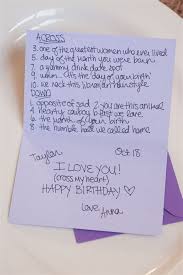 ACROSS
3. one of the greatest women who ever lived
5. day of the month you were born
7. a yummy drink date spot
9. umm.. it's the day of your birth
10. we neck this
DOWN
1. opposite of sad 2. you are this animal
4. hearty cowboy & east we love
6. the month of your birth
8. the humble home we called home
Taylor Oct 18
I LOVE YOU!
(cross my heart)
HAPPY BIRTHDAY ♡
Love, Anna